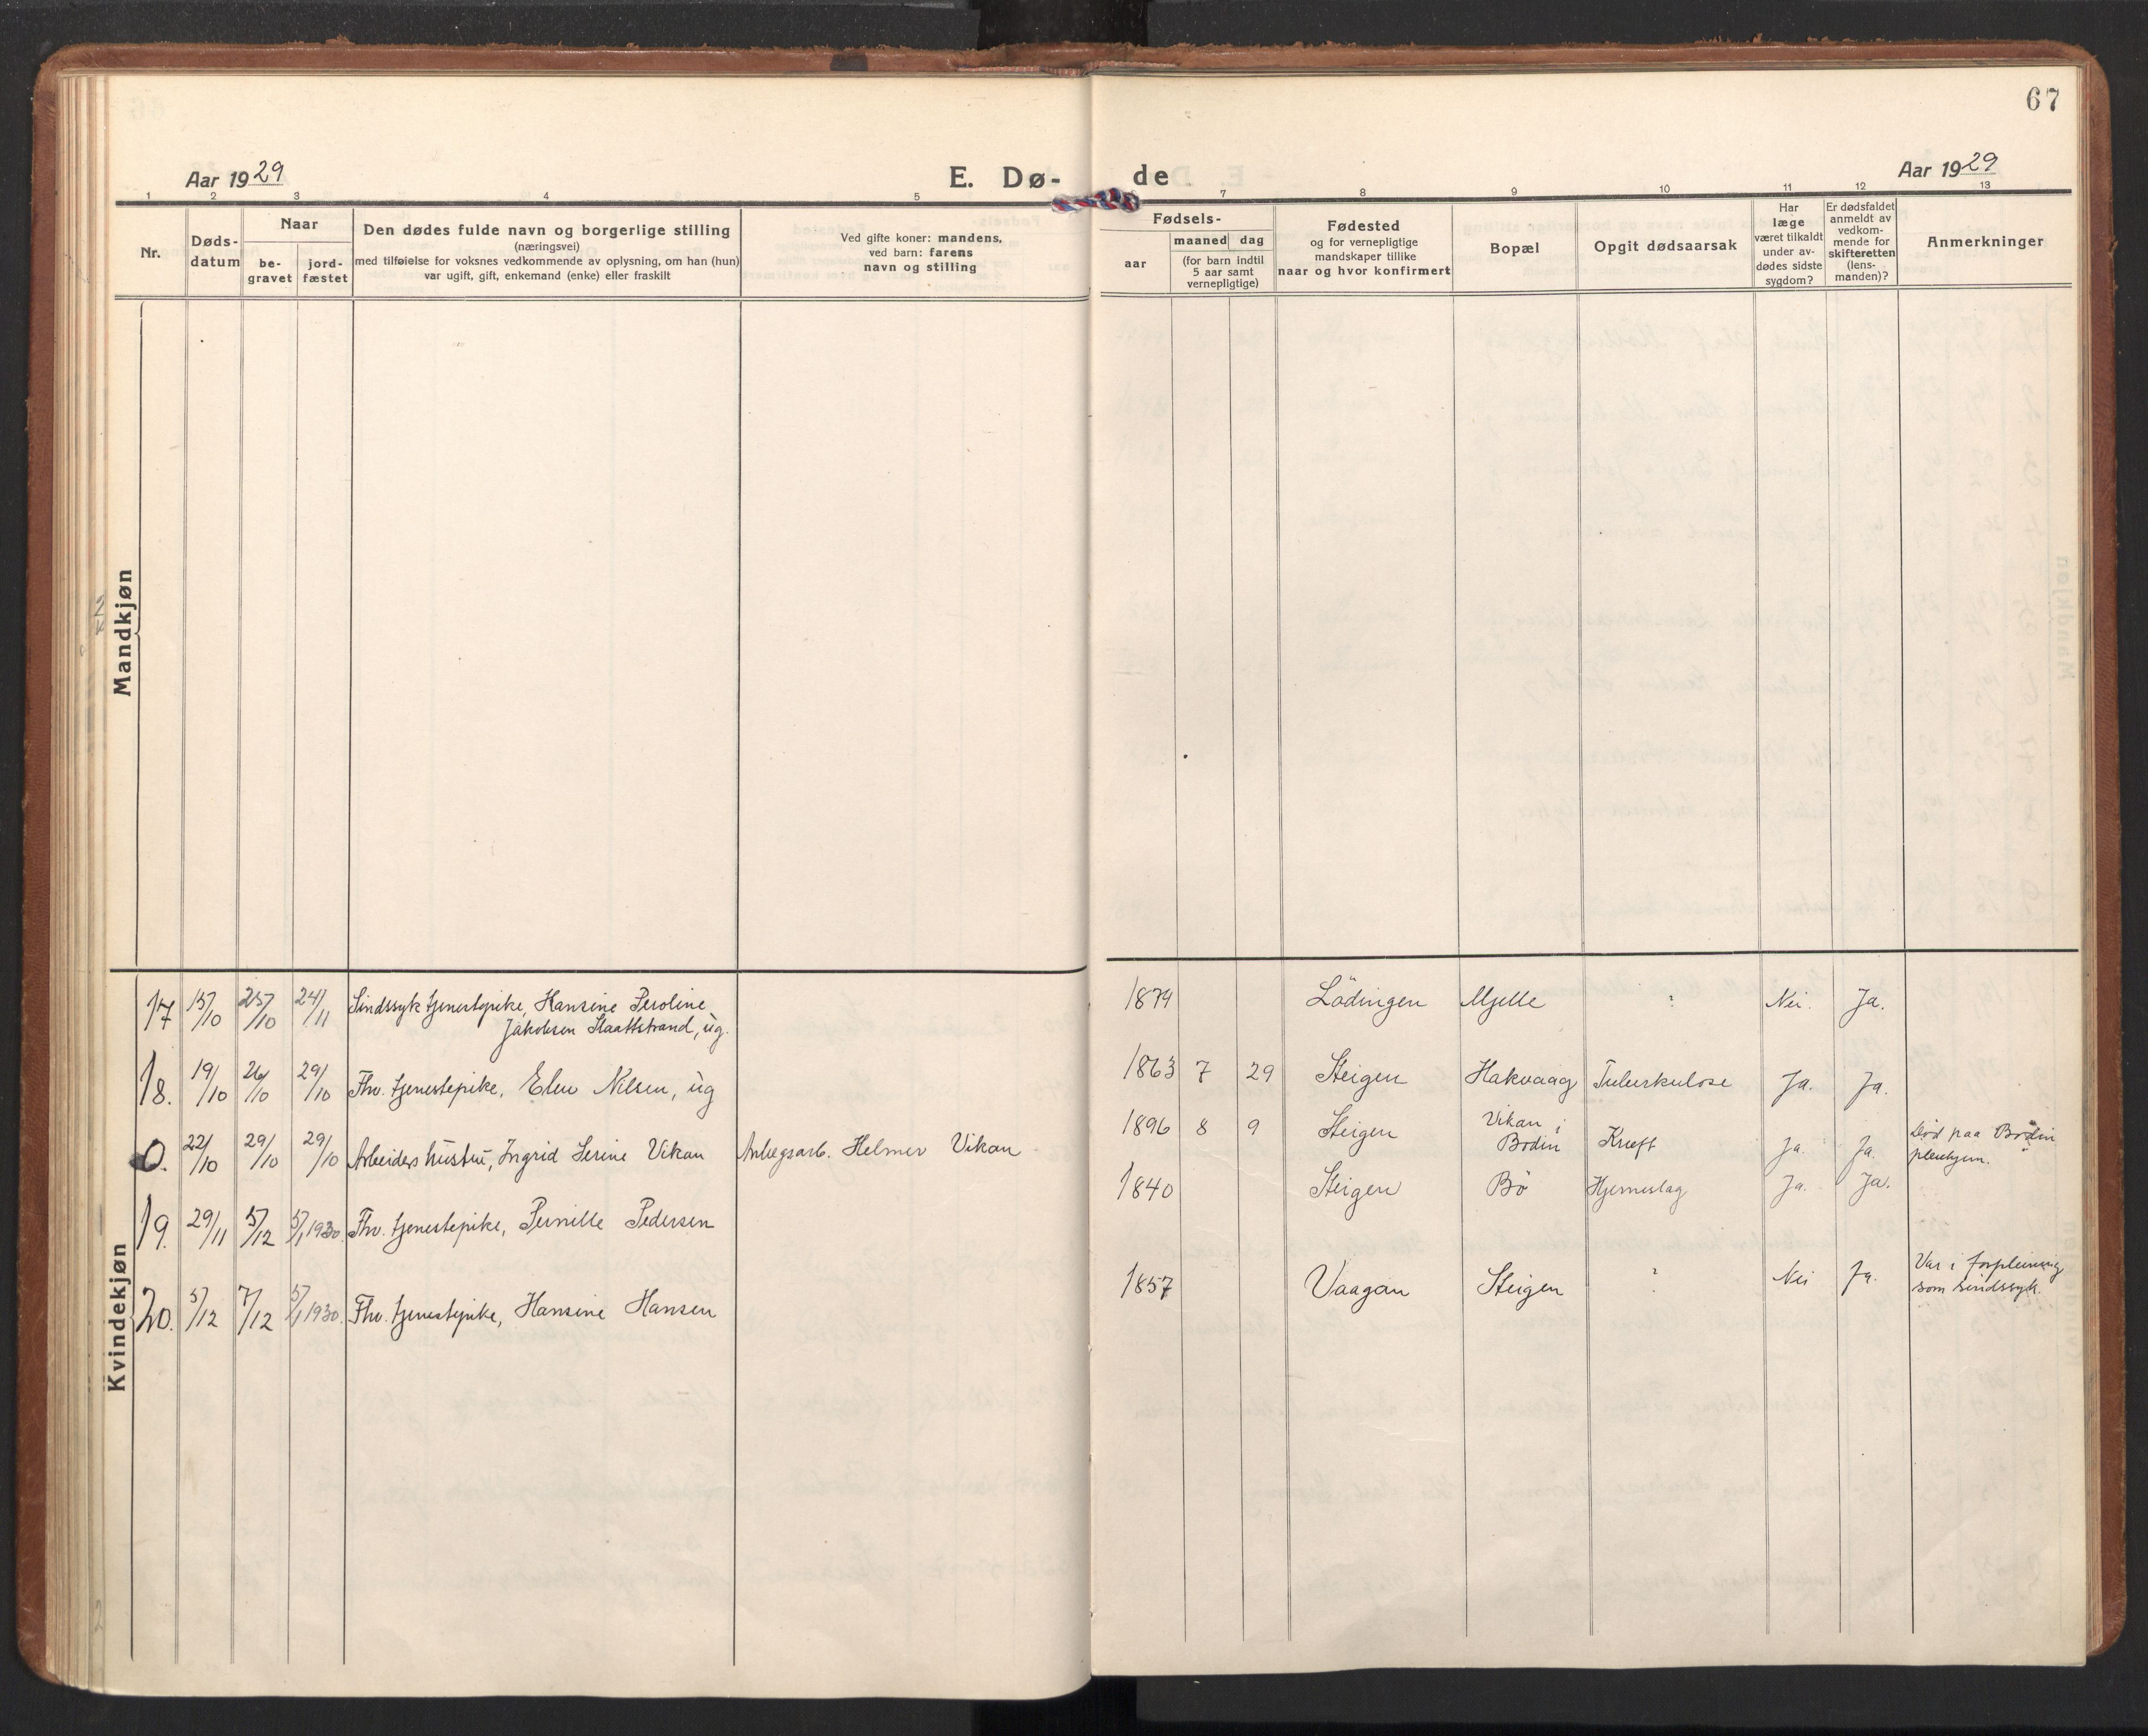 67
Aar 1929
E. Dø-
de
Aar 1929
1 2 3 4 5 6 7 8 9 10 11 12 13
Nr.
Døds-
datum
Naar
be-
gravet
jord-
fæstet
Den dødes fulde navn og borgerlige stilling
(næringsvei)
med tilføielse for voksnes vedkommende av oplysning, om han (hun)
var ugift, gift, enkemand (enke) eller fraskilt
Ved gifte koner: mandens,
ved barn: farens
navn og stilling
Fødsels-
aar
maaned dag
(for barn indtil
5 aar samt
vernepligtige)
Fødested
og for vernepligtige
mandskaper tillike
naar og hvor konfirmert
Bopæl
Opgit dødsaarsak
Har
læge
været tilkaldt
under av-
dødes sidste
sygdom?
Er dødsfaldet
anmeldt av
vedkom-
mende for
skifteretten
(lens-
manden)?
Anmerkninger
Mandkjøn
Kvindekjøn
17 15/10 25/10 24/11 Sindssyk tjenestepike, Hansine Peroline
Jakobsen Slaattstrand, ug. 1879 Lödingen Mjelle ? Nei. Ja.
18. 19/10 26/10 29/10 Fhv. tjenestepike, Elen Nilsen, ug 1863 7 29 Steigen Hakvaag Tuberkulose Ja. Ja.
0. 22/10 29/10 29/10 Arbeiders hustru, Ingrid Serine Vikan Anlegsarb. Helmer Vikan 1896 8 9 Steigen Vikan i
Bodin Kræft Ja. Ja. Död paa Bodin
pleiehjem.
19. 29/11 5/12 5/1 1930. Fhv. tjenestepike, Pernille Pedersen 1840 Steigen Bö Hjerneslag Ja. Ja.
20. 5/12 7/12 5/1 1930. Fhv. tjenestepike, Hansine Hansen 1857 Vaagan Steigen ? Nei Ja. Var i forpleining
som sindssyk.